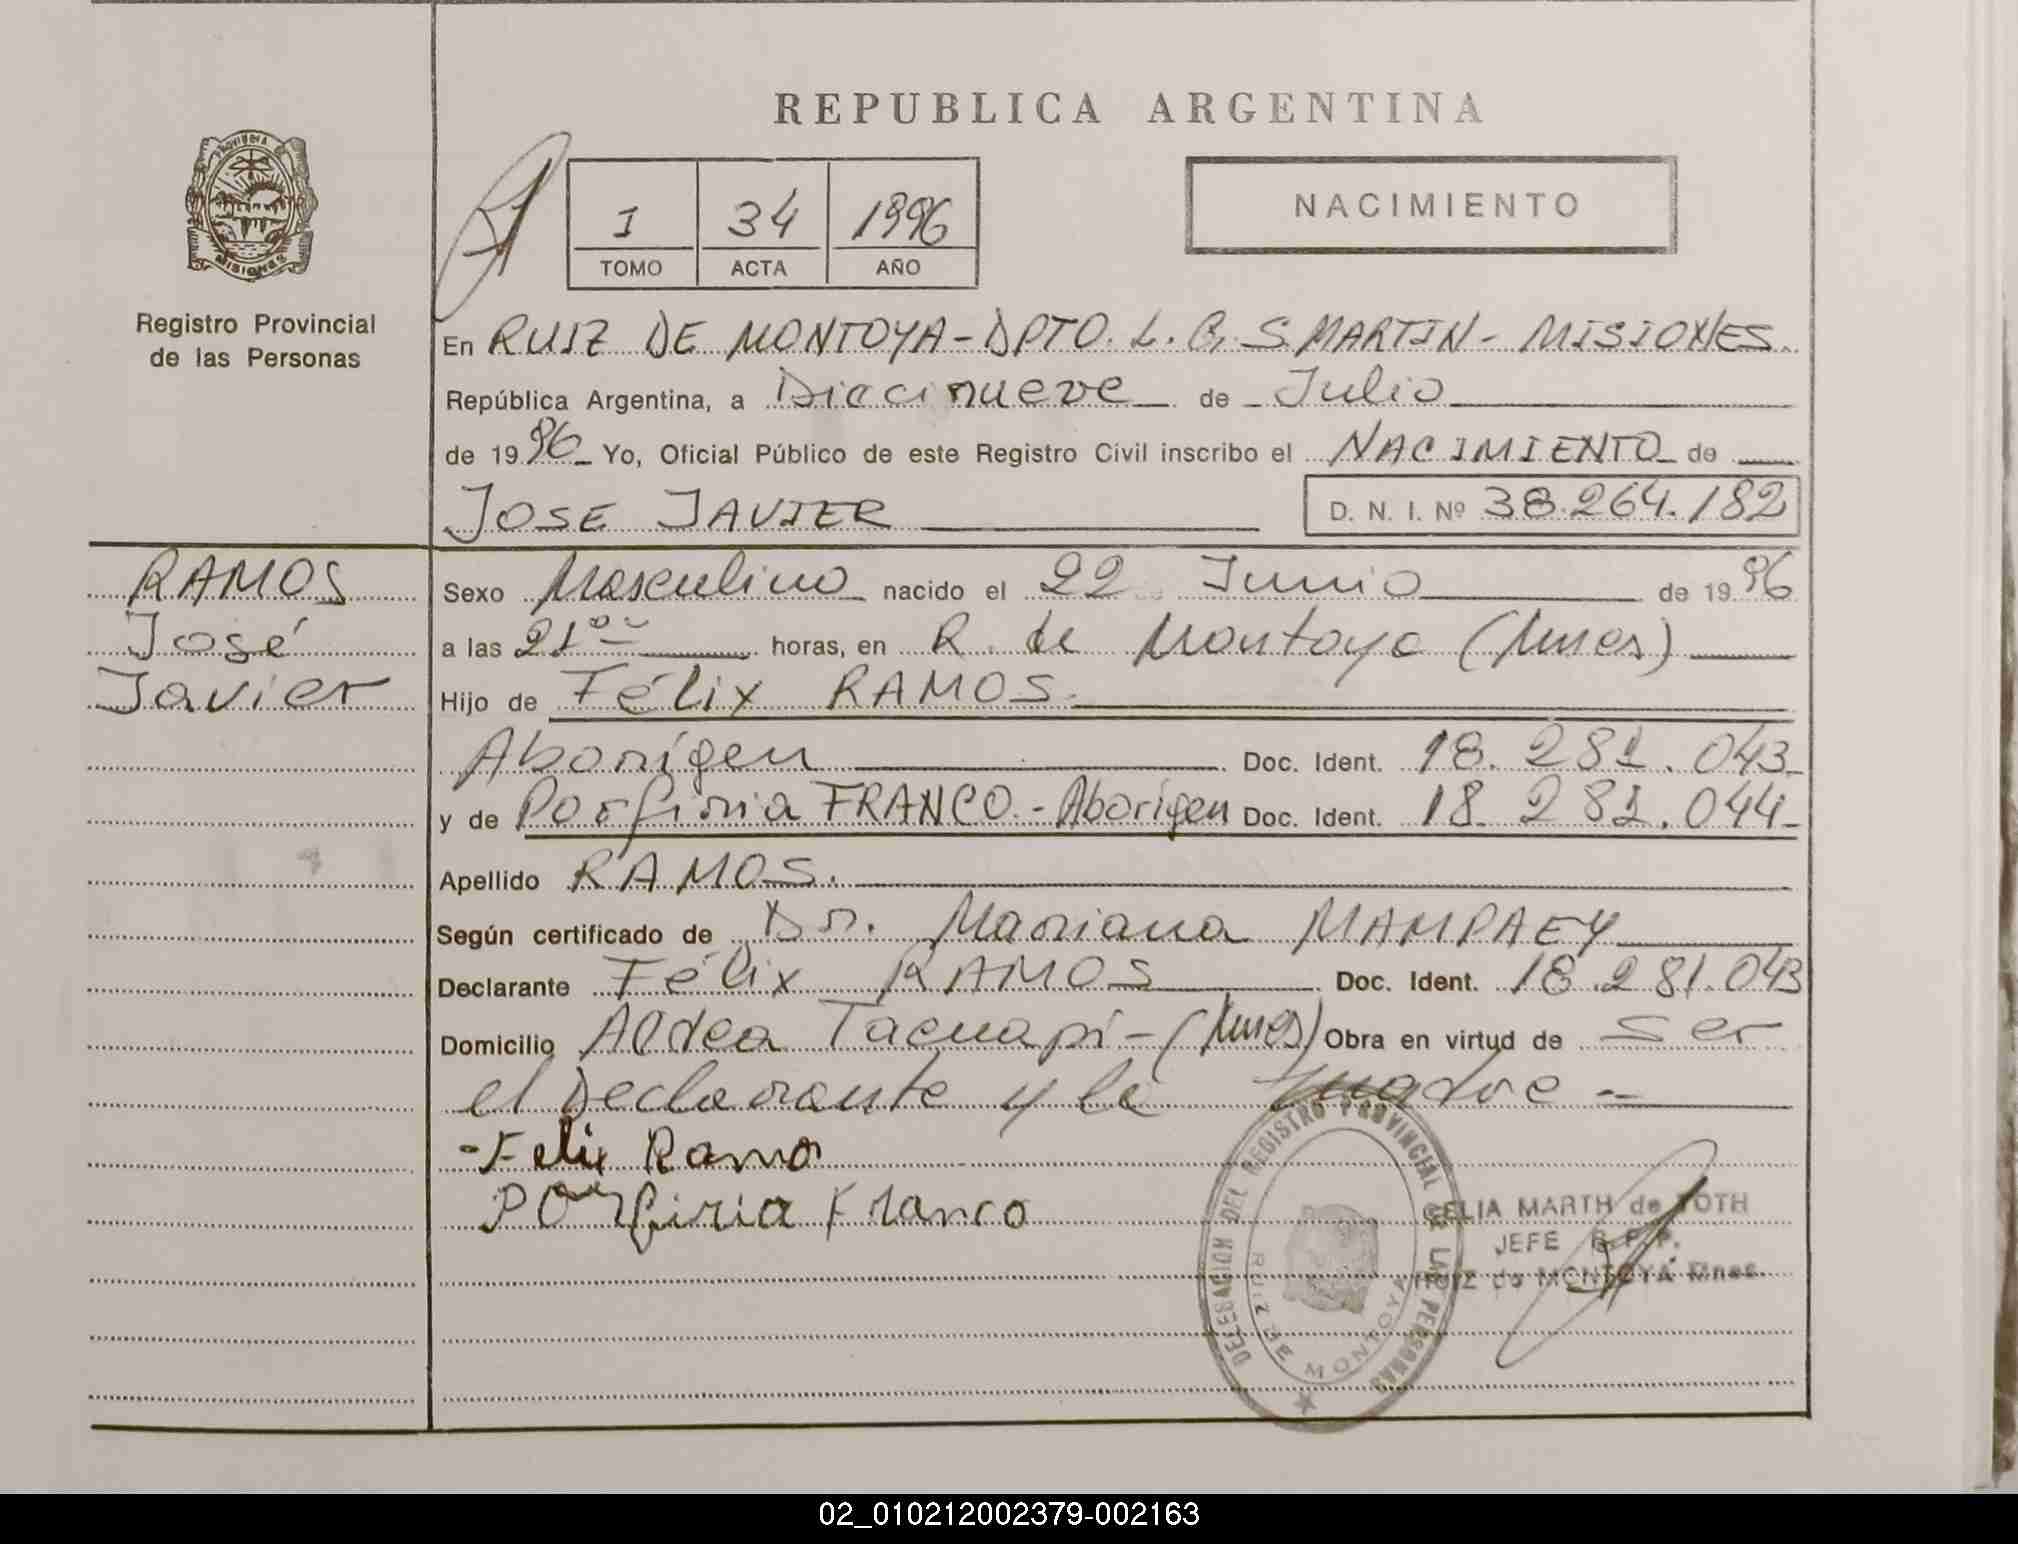 REPUBLICA ARGENTINA
PROVINCIA
MISIONES
Registro Provincial
de las Personas
1 34 1996
TOMO ACTA AÑO
NACIMIENTO
En RUIZ DE MONTOYA - DPTO. L. G. S. MARTIN - MISIONES.
República Argentina, a Diecinueve de Julio
de 1996 Yo, Oficial Público de este Registro Civil inscribo el NACIMIENTO de
JOSE JAVIER D. N. I. Nº 38.264.182
RAMOS
José
Javier
Sexo Masculino nacido el 22 Junio de 1996
a las 21⁰⁰ horas, en R. de Montoya (Mnes)
Hijo de Félix RAMOS.
Aborígen Doc. Ident. 18.281.043
y de Porfiria FRANCO.- Aborígen Doc. Ident. 18.281.044
Apellido RAMOS.
Según certificado de Dr. Mariana MAMPAEY
Declarante Félix RAMOS Doc. Ident. 18.281.043
Domicilio Aldea Tacuapi - (Mnes) Obra en virtud de ser
el Declarante y la madre
- Felix Ramo
Porfiria Franco
DELEGACION DEL REGISTRO PROVINCIAL DE LAS PERSONAS
RUIZ DE MONTOYA
CELIA MARTH de TOTH
JEFE R.P.P.
RUIZ de MONTOYA Mnes.
02_010212002379-002163